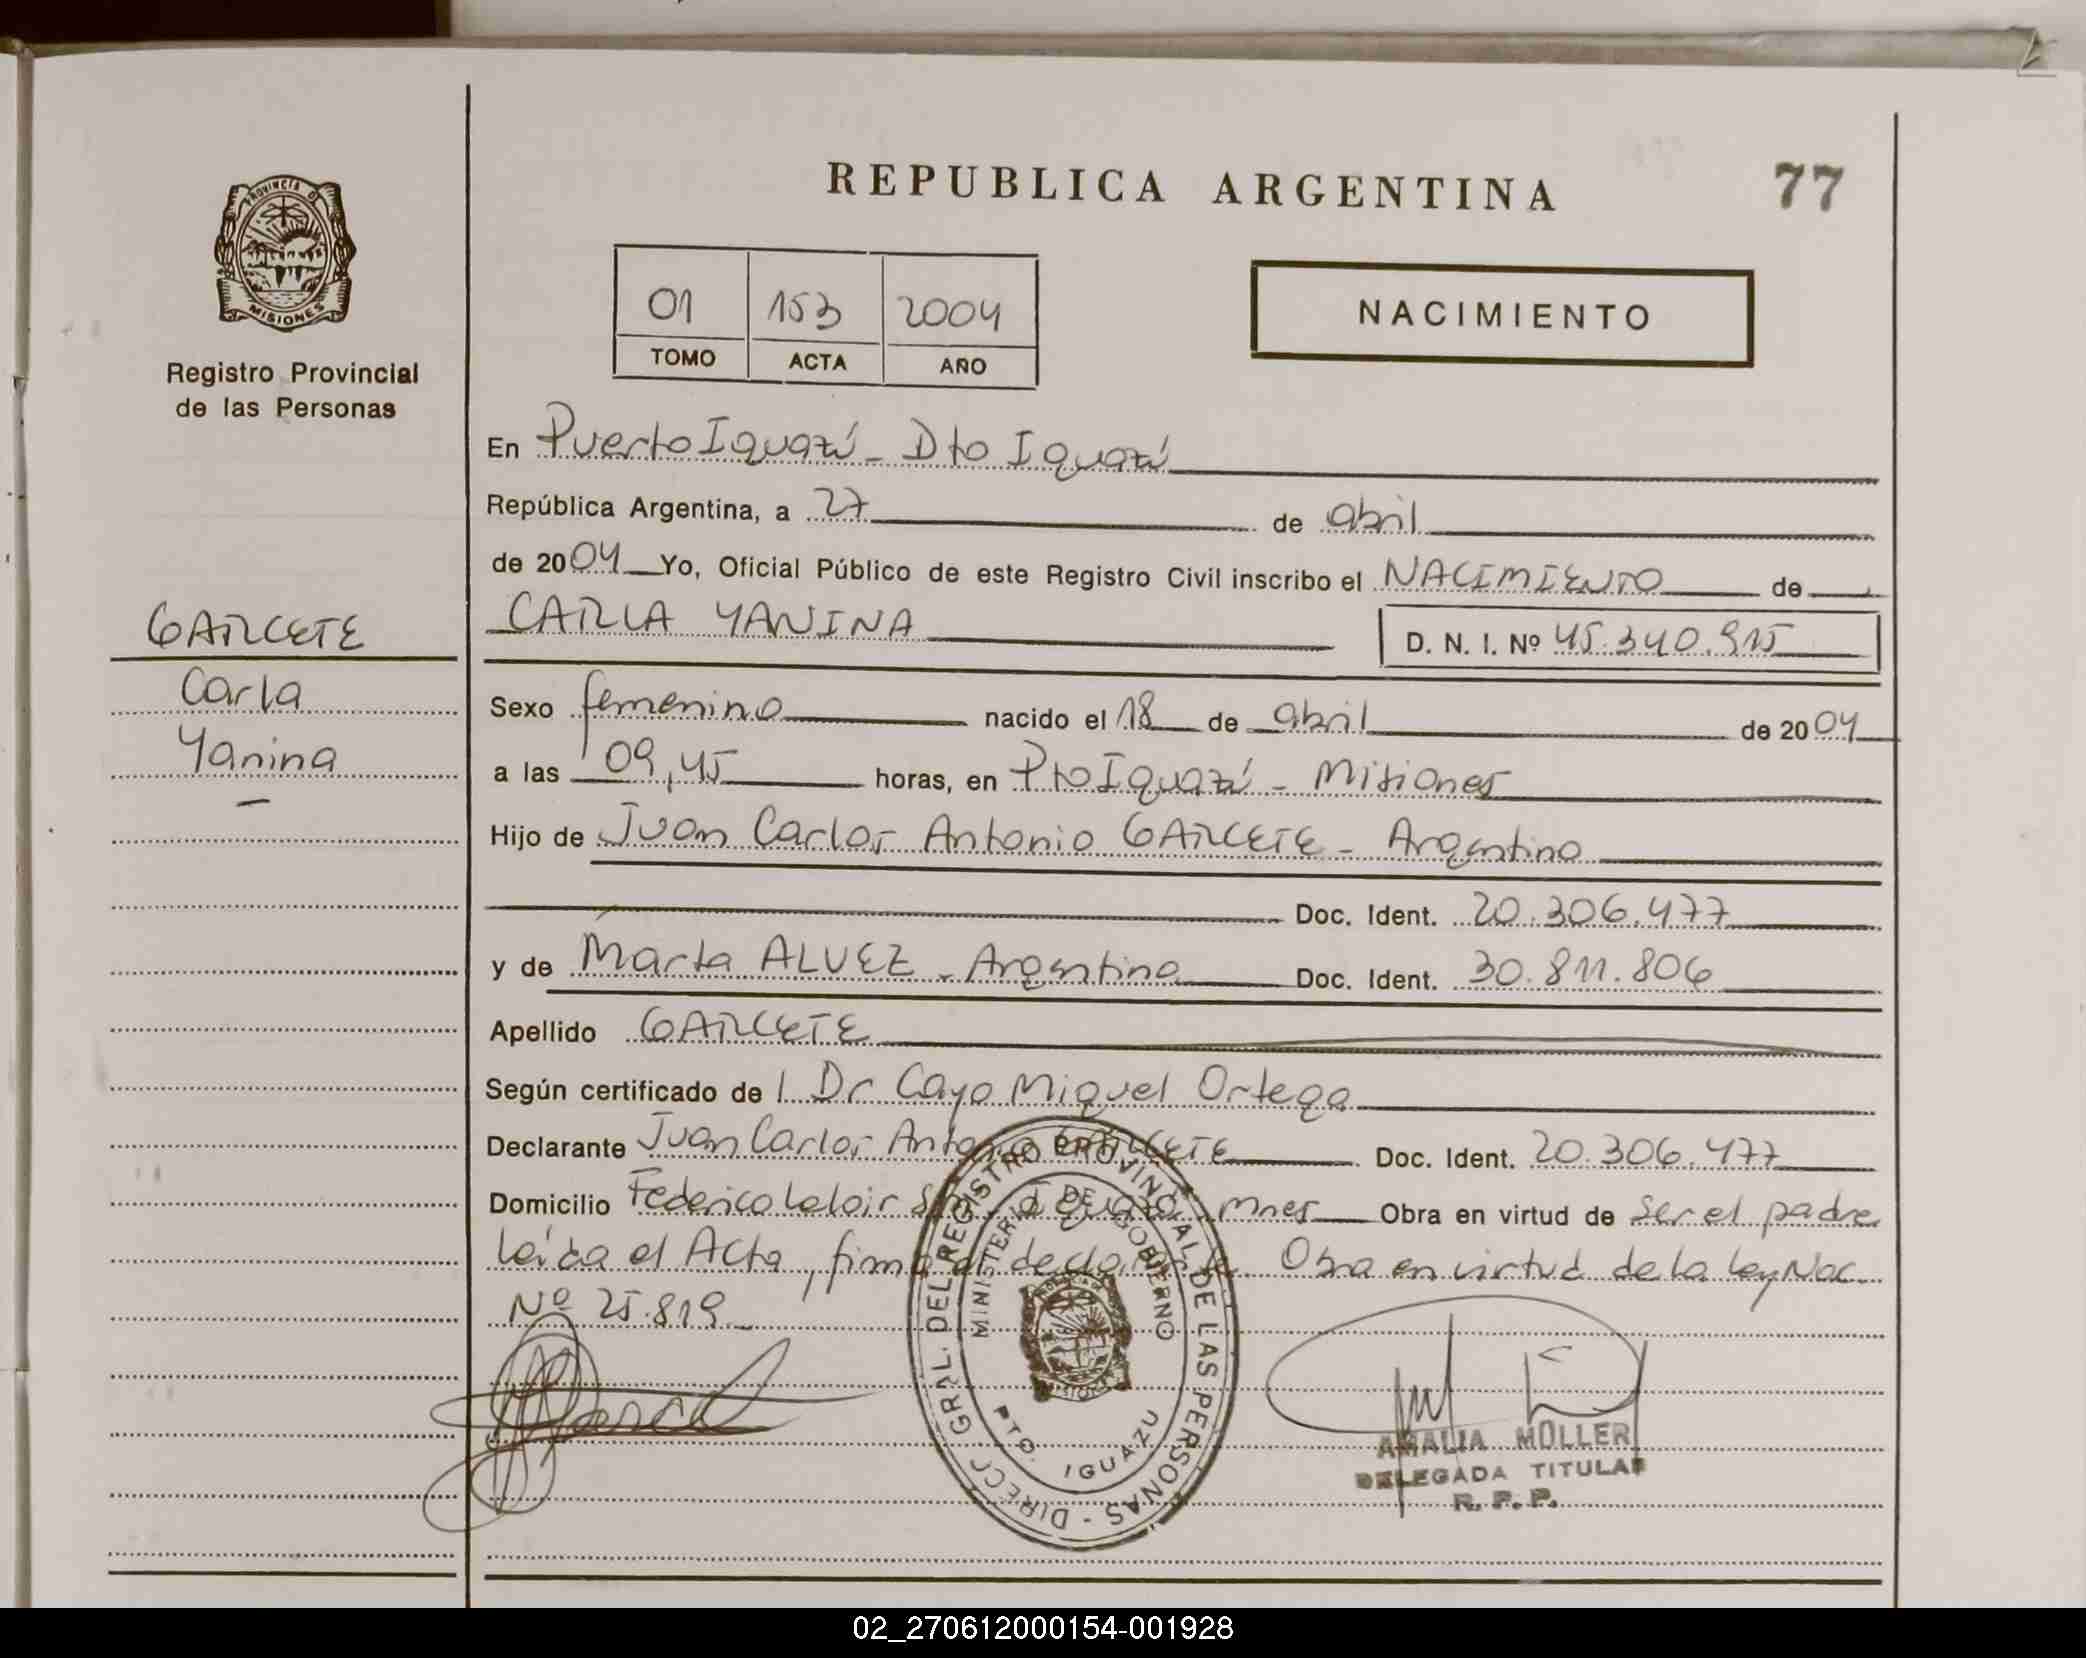 REPUBLICA ARGENTINA
77
PROVINCIA DE
MISIONES
Registro Provincial
de las Personas
01 153 2004
TOMO ACTA AÑO
NACIMIENTO
En Puerto Iguazú - Dto Iguazú
República Argentina, a 27 de abril
de 2004 Yo, Oficial Público de este Registro Civil inscribo el NACIMIENTO de
CARLA YANINA
D. N. I. Nº 45.340.915
GARCETE
Carla
Yanina
Sexo femenino nacido el 18 de abril de 2004
a las 09,45 horas, en Pto Iguazú - Misiones
Hijo de Juan Carlos Antonio GARCETE - Argentino
Doc. Ident. 20.306.477
y de Marta ALVEZ - Argentina Doc. Ident. 30.811.806
Apellido GARCETE
Según certificado de l Dr Cayo Miguel Ortega
Declarante Juan Carlos Antonio GARCETE Doc. Ident. 20.306.477
Domicilio Federico Leloir Iguazú Mnes Obra en virtud de ser el padre
Leída el Acta, firma el declarante. Obra en virtud de la Ley Nac.
Nº 25.819
DIRECC. GRAL. DEL REGISTRO PROVINCIAL DE LAS PERSONAS -
MINISTERIO DE GOBIERNO
MISIONES
PTO. IGUAZU
AMALIA MOLLER
DELEGADA TITULAR
R. P. P.
02_270612000154-001928